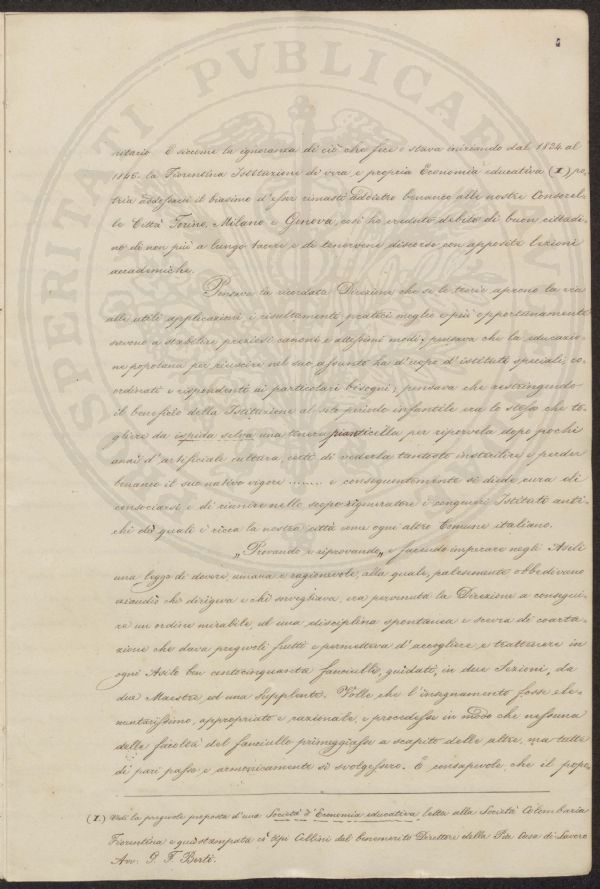 nitario. E siccome la ignoranza di ciò che fece e stava iniziando dal 1824 al
1846 la Fiorentina Istituzione di vera e propria Economia educativa (I) po-
tria addossarci il biasimo d'esser rimasti addietro benanco alle nostre Consorel-
le Città Torino, Milano e Genova, così ho creduto debito di buon cittadi-
no di non più a lungo tacere e di tenervene discorso con apposite lezioni
accademiche.
Pensava la ricordata Direzione che se le teorie aprono la via
alle utili applicazioni i risultamenti pratici meglio e più opportunamente
servono a stabilire preziosi canoni e attesissimi modi; pensava che la educazio-
ne popolana per riuscire nel suo assunto ha d'uopo d'istituti speciali, co-
ordinati e rispondenti ai particolari bisogni; pensava che restringendo
il beneficio della Istituzione al solo periodo infantile era lo stesso che to-
gliere da ispida selva una tenera pianticella per riporvela dopo pochi
anni d'artificiale cultura, certi di vederla tantosto insterilire e perder
benanco il suo nativo vigore ........ e conseguentemente si diede cura di
consociarsi e di riunire nello scopo rigeneratore i congeneri Istituti anti-
chi dei quali è ricca la nostra città come ogni altro Comune italiano.
„Provando e riprovando„ e facendo imperare negli Asili
una legge di dovere, umana e ragionevole, alla quale, palesemente obbedivano
eziandio chi dirigeva e chi sorvegliava, era pervenuta la Direzione a consegui-
re un ordine mirabile ed una disciplina spontanea e scevra di coarta-
zione che dava pregevoli frutti e permetteva d'accogliere e trattenere in
ogni Asilo ben centocinquanta fanciulli, guidati, in due Sezioni, da
due Maestre ed una Supplente. Volle che l'insegnamento fosse ele-
mentarissimo, appropriato e razionale, e procedesse in modo che nessuna
delle facoltà del fanciullo primeggiasse a scapito delle altre, ma tutte
di pari passo e armonicamente si svolgessero. E consapevole che il popo-
(I) Vedi la pregevole proposta d'una Società d'Economia educativa letta alla Società Colombaria
Fiorentina e quì stampata co' tipi Cellini dal benemerito Direttore della Pia Casa di Lavoro
Avv. P. F. Berti.
SPERITATI PVBLICAE